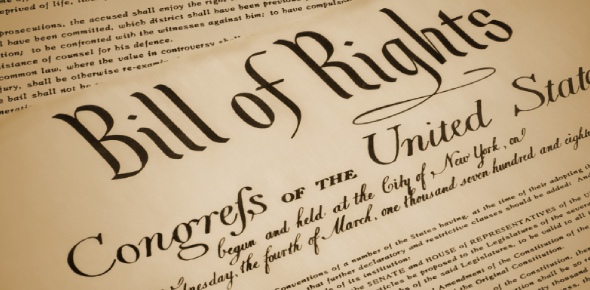 prived of life,
prosecutions, the accused shall enjoy the right
l have been committed, which district shall have been previous
tion; to be confronted with the witnesses against him; to have compuls
istance of counsel for his defence.
common law, where the value in controversy
jury, shall be otherwise re-exami
bail shall not
Bill of Rights
Congreſs OF THE United State
begun and held at the City of New York, on
nesday, the fourth of March, one thousand seven hundred and eight
onventions of a number of the States having, at the time of their adopting
that further declaratory and restrictive clauses should be added:
of its institution:
the SENATE and HOUSE of REPRESENTATIVES of the
articles be proposed to the Legislatures of the several
said Legislatures, to be valid to all
Amendment of the Constitution of
the Original Constitution.